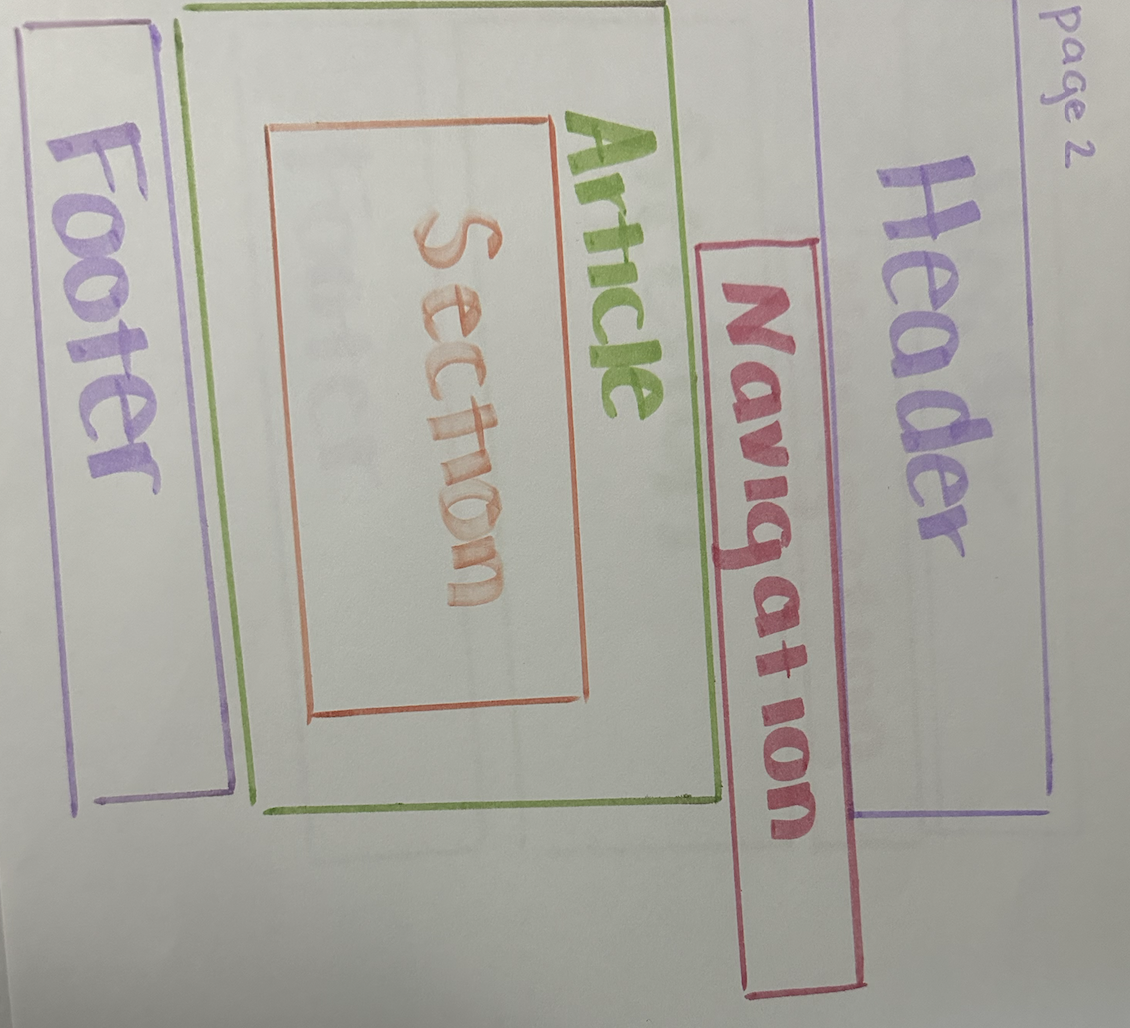 page 2
Header
Navigation
Article
Section
Footer